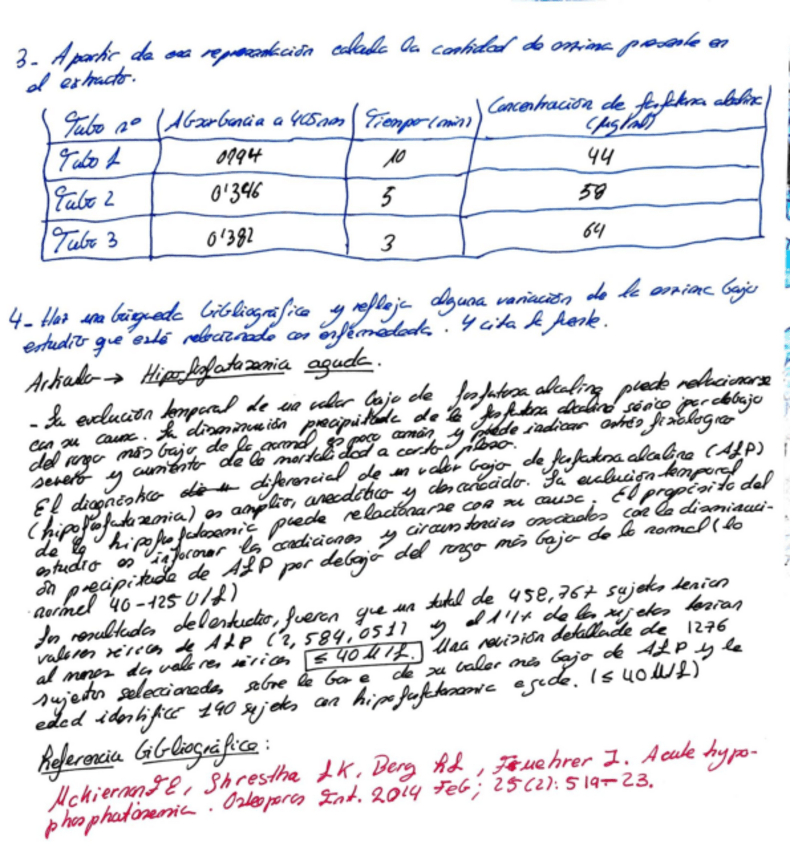 3- A partir de esa representación calcula la cantidad de enzima presente en
el extracto.
Tubo nº | Absorbancia a 405nm | Tiempo (min) | Concentración de fosfatasa alcalina (µg/ml)
Tubo 1 | 0'794 | 10 | 44
Tubo 2 | 0'346 | 5 | 58
Tubo 3 | 0'382 | 3 | 64
4- Haz una búsqueda bibliográfica y refleja alguna variación de la enzima bajo
estudio que esté relacionada con enfermedades. Y cita la fuente.
Artículo → Hipofosfatasemia aguda.
- La evolución temporal de un valor bajo de fosfatasa alcalina puede relacionarse
con su causa. La disminución precipitada de la fosfatasa alcalina sérica por debajo
del rango más bajo de lo normal es poco común y puede indicar estrés fisiológico
severo y aumento de la mortalidad a corto plazo.
El diagnóstico diferencial de un valor bajo de fosfatasa alcalina (ALP)
(hipofosfatasemia) es amplio, anecdótico y desconocido. La evolución temporal
de la hipofosfatasemia puede relacionarse con su causa. El propósito del
estudio es informar las condiciones y circunstancias asociadas con la disminuci-
ón precipitada de ALP por debajo del rango más bajo de lo normal (lo
normal 40-125 U/L)
Los resultados del estudio, fueron que un total de 458,767 sujetos tenían
valores séricos de ALP (2,584,051) y el 1'1% de los sujetos tenían
al menos dos valores séricos ≤ 40 U/L. Una revisión detallada de 1276
sujetos seleccionados sobre la base de su valor más bajo de ALP y la
edad identificó 190 sujetos con hipofosfatasemia aguda. (≤ 40 U/L)
Referencia bibliográfica:
Mckiernan FE, Shrestha LK, Berg RL, Fuehrer J. Acute hypo-
phosphatasemia. Osteoporos Int. 2014 Feb; 25(2): 519-23.